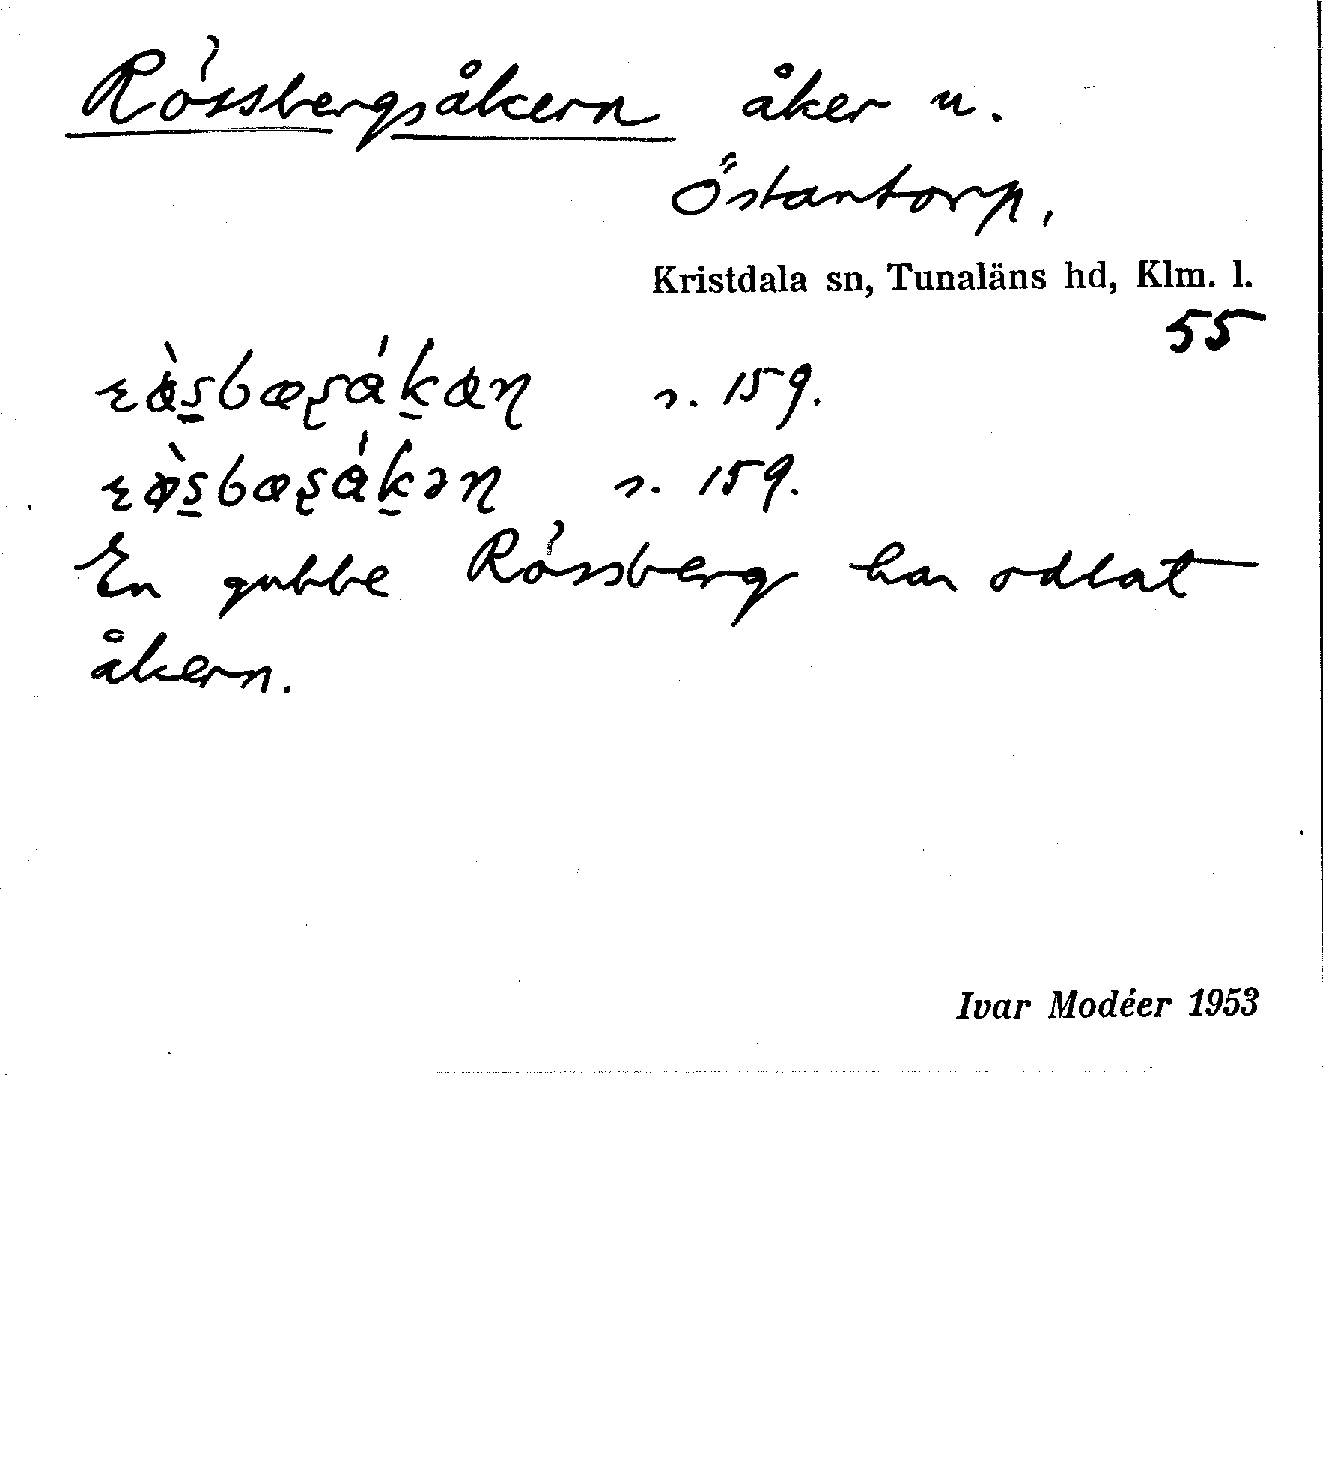 Rössbergsåkern åker u.
Östantorp,
Kristdala sn, Tunaläns hd, Klm. l.
55
s. 159.
s. 159.
En gubbe Rössberg har odlat
åkern.
Ivar Modéer 1953